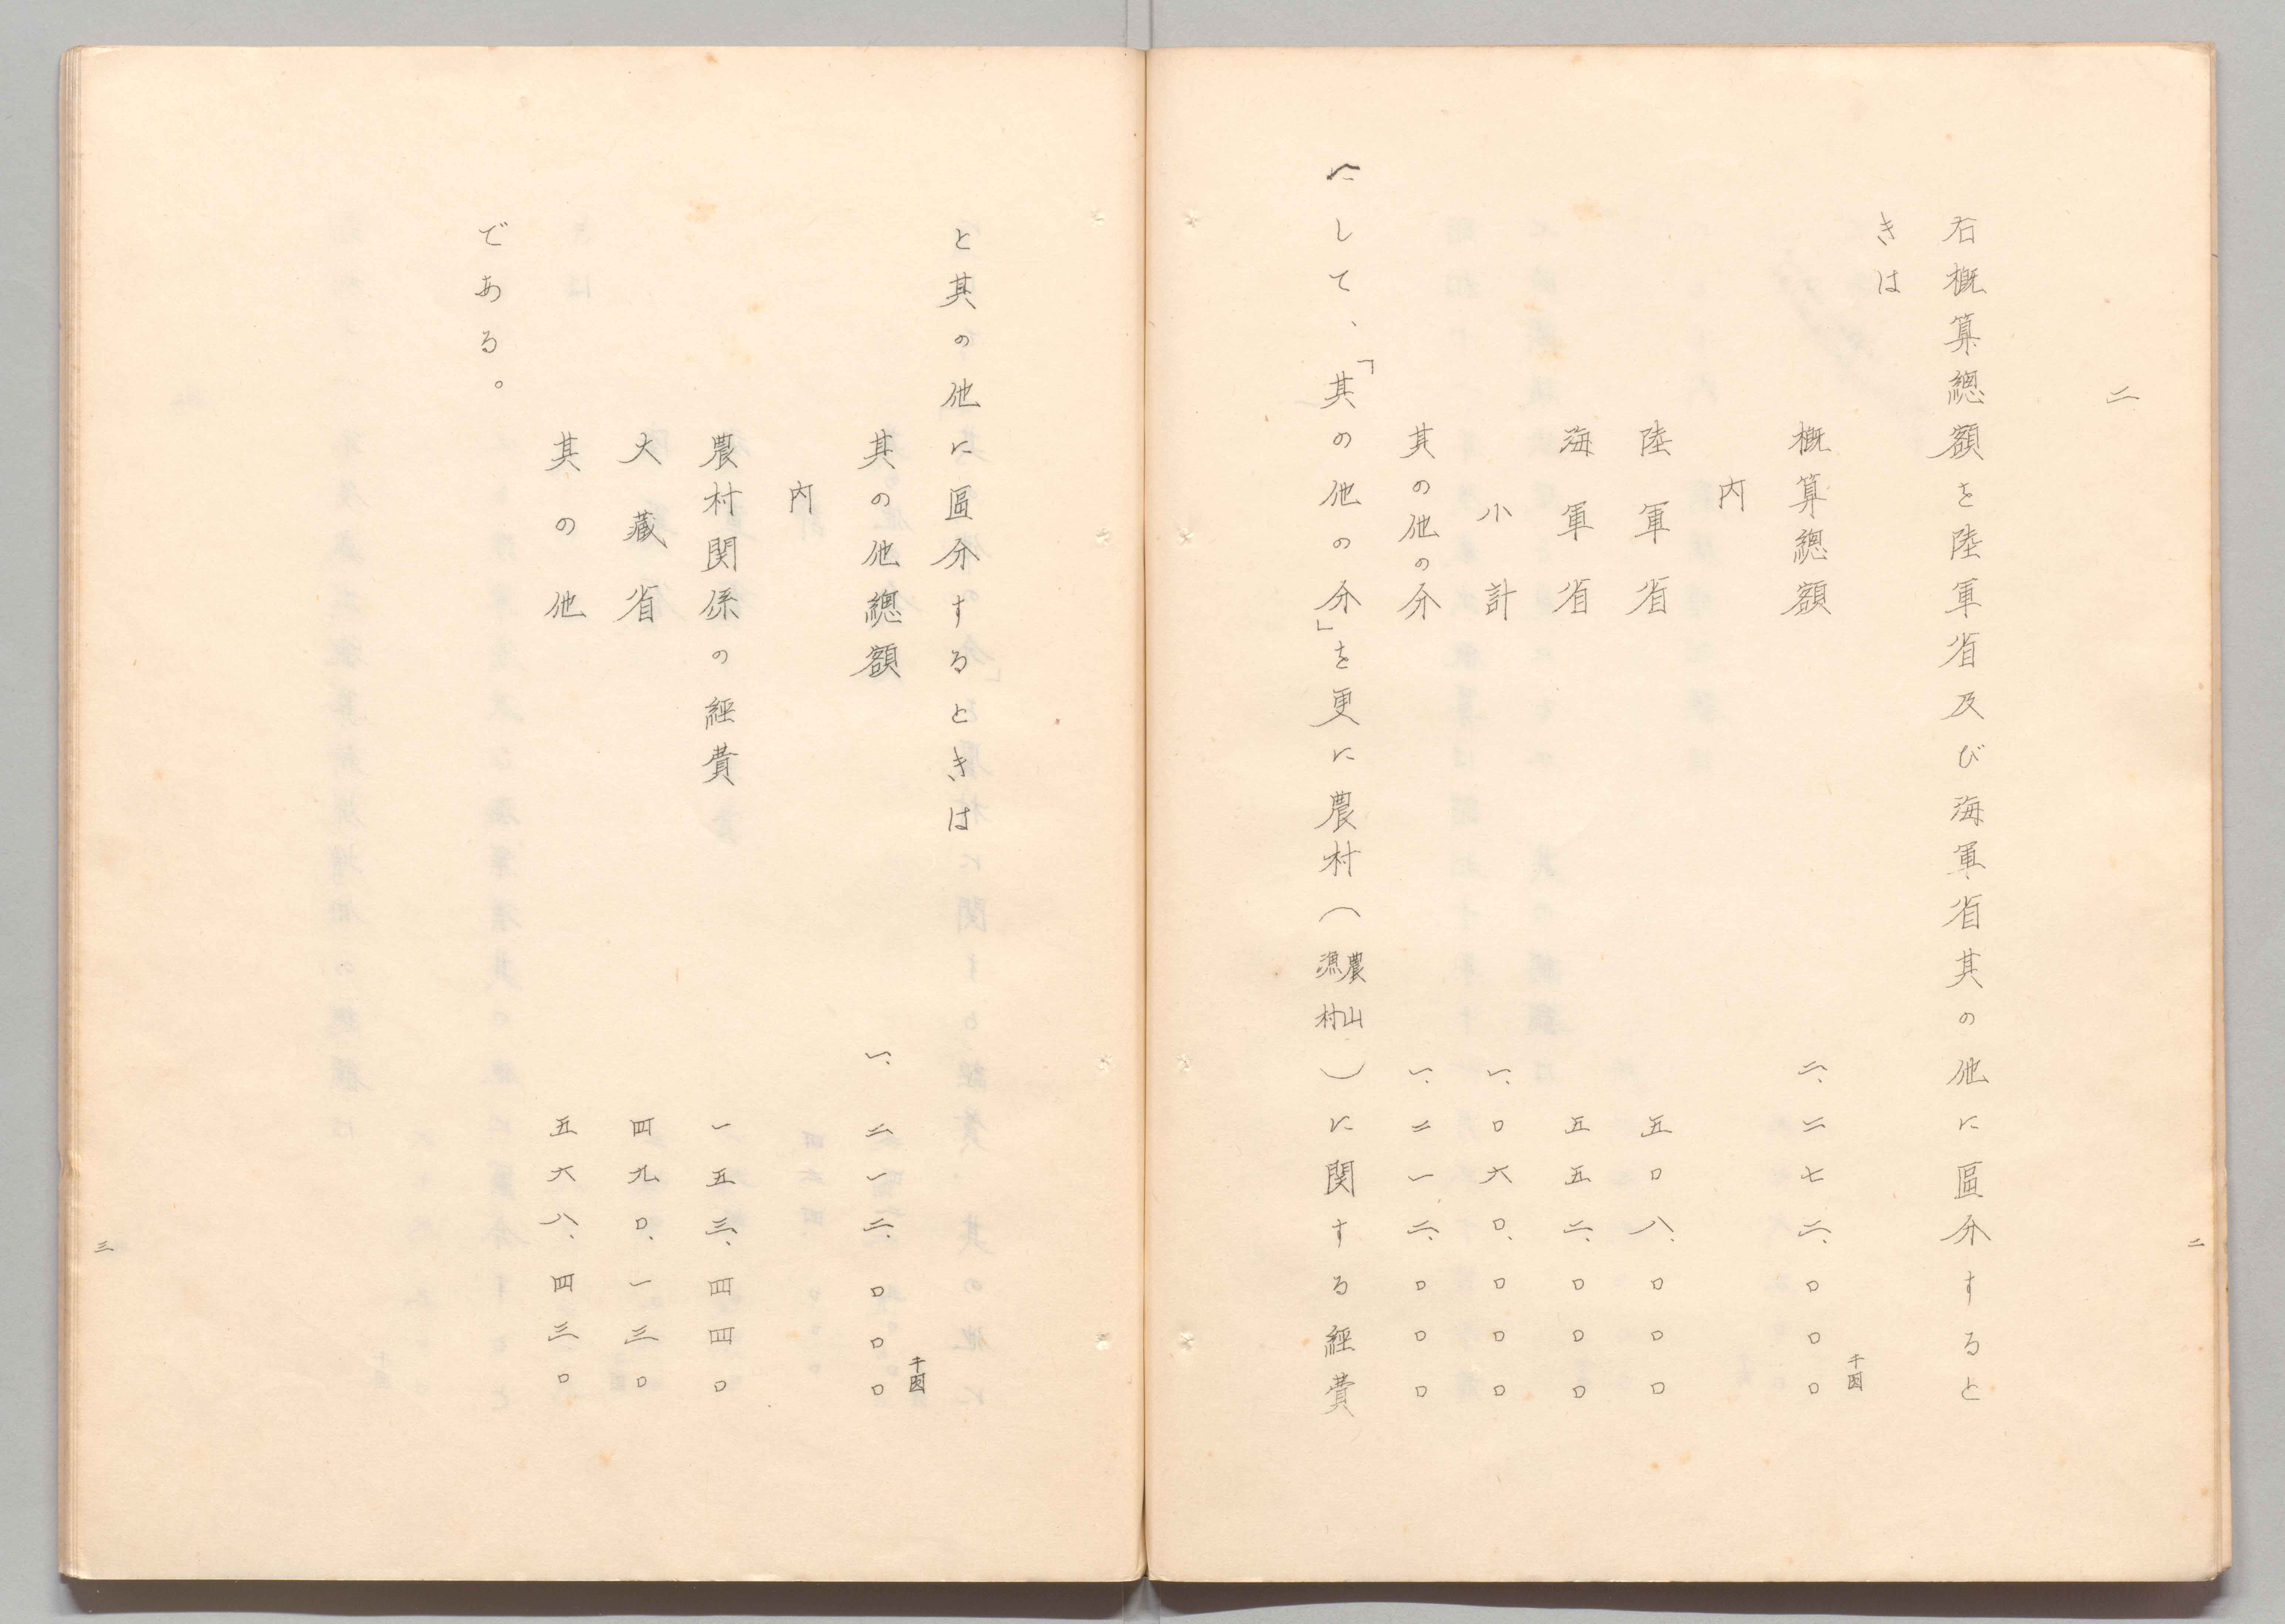 二
右概算總額を陸軍省及び海軍省其の他に區分すると
きは
千圓
概算總額 二、二七二、〇〇〇
内
陸軍省 五〇八、〇〇〇
海軍省 五五二、〇〇〇
小計 一、〇六〇、〇〇〇
其の他の分 一、二一二、〇〇〇
にして、「其の他の分」を更に農村(農山漁村)に関する経費
二
と其の他に區分するときは
千圓
其の他總額 一、二一二、〇〇〇
内
農村関係の經費 一五三、四四〇
大藏省 四九〇、一三〇
其の他 五六八、四三〇
である。
三